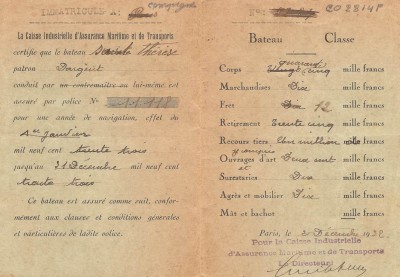 IMMATRICULÉ A: Compiegne
La Caisse Industrielle d'Assurance Maritime et de Transports
certifie que le bateau Sainte Thérèse
patron
conduit par un contremaître ou lui-même, est
assuré par police N°
pour une année de navigation, effet du
1er Janvier
mil neuf cent trente trois
jusqu'au 31 Décembre mil neuf cent
trente trois
Ce bateau est assuré comme suit, confor-
mément aux clauses et conditions générales
et particulières de ladite police.
N° CO 2814 F
Bateau Classe
quarante
Corps cinq mille francs
Marchandises Dix mille francs
Fret 12 mille francs
Retirement Trente cinq mille francs
Recours tiers Un million mille francs
y compris
Ouvrages d'art Deux cent mille francs
et
Surestaries Dix mille francs
Agrès et mobilier Dix mille francs
Mât et bachot mille francs
Paris, le 2 Décembre 1932
Pour la Caisse Industrielle
d'Assurance Maritime et de Transports
Le Directeur: